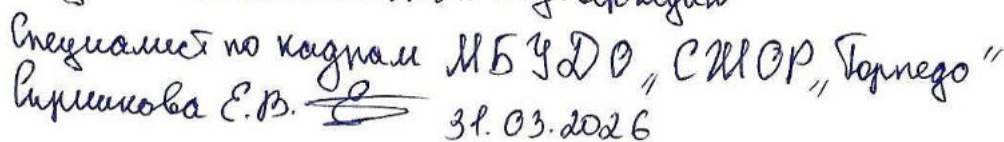 Специалист по кадрам МБУДО „СШОР „Торпедо"
Е.В.
31.03.2026